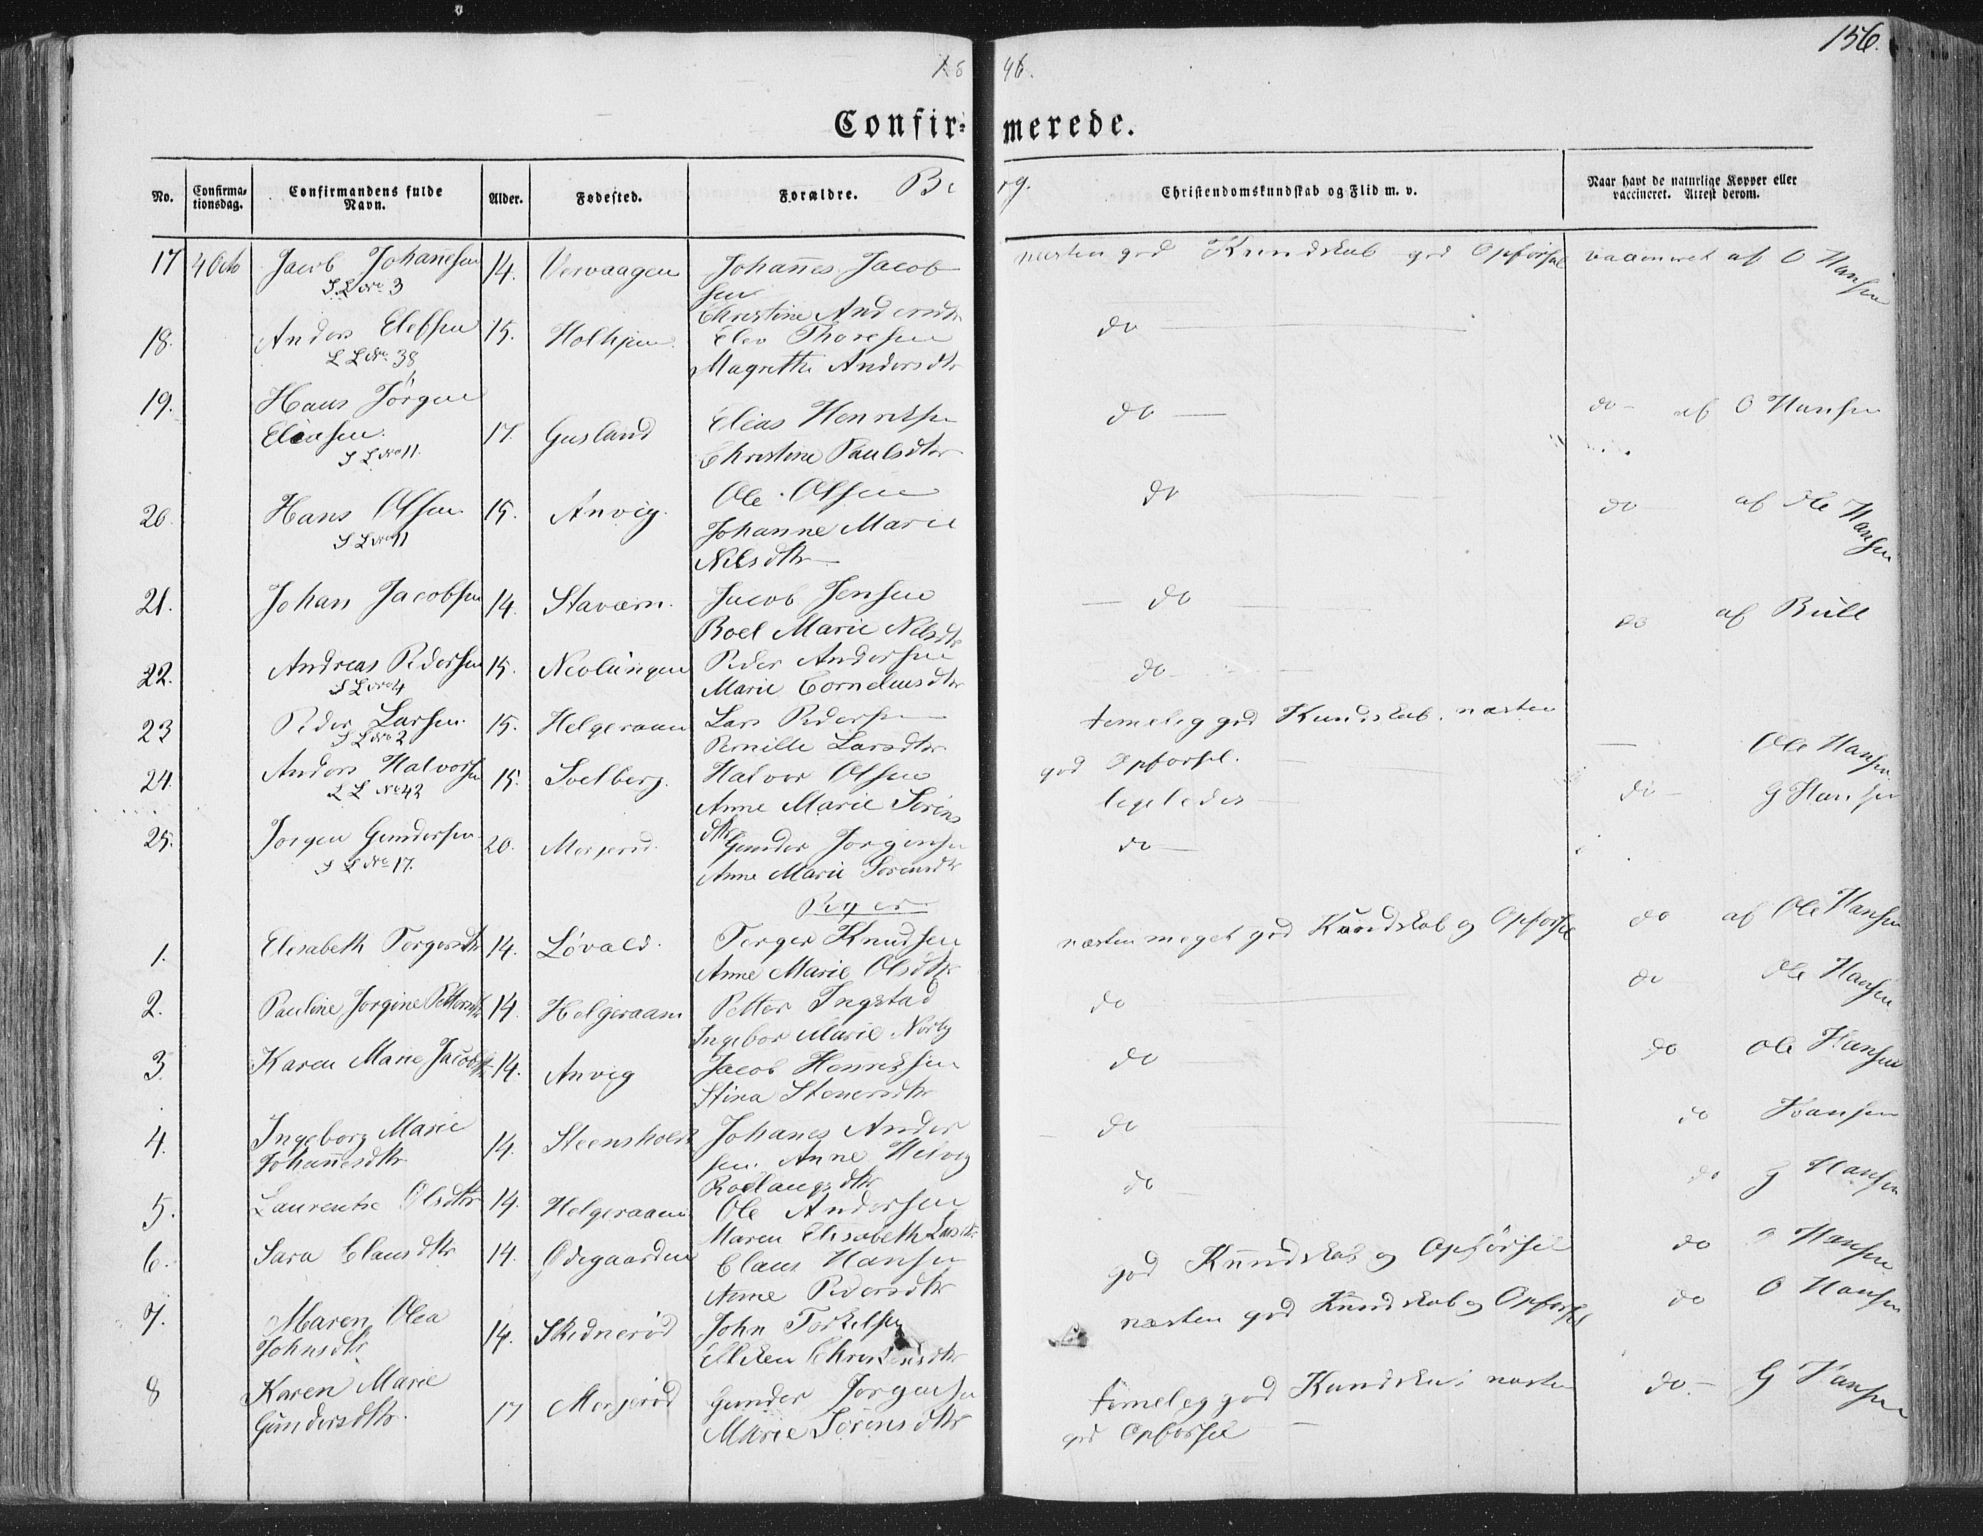 156.
18 46.
Confir- merede.
Berg.
No. Confirmationsdag. Confirmandens fulde Navn. Alder. Fødested. Forældre. Christendomskundskab og Flid m. v. Naar havt de naturlige Kopper eller vaccineret. Attest derom.
17 4 Octo Jacob Johannesen 14. Vervaagen Johannes Jacob næsten god Kundskab god Opførsel vaccineret af O Hansen
S L No 3 sen
Christine Andersdtr
18. Anders Elefsen 15. Holhjem Elev Thoresen do
L L No 38 Magrethe Andersdtr
19. Hans Jörgen Elias Henriksen do do af O Hansen
Eliasen. 17. Gusland Christine Paulsdtr
S L No 11.
20. Hans Olsen 15. Anvig. Ole Olsen do do af Ole Hansen
S L No 11 Johanne Marie
Nilsdtr
21. Johan Jacobsen 14. Staværn. Jacob Jensen do do af Bull
Boel Marie Nilsdtr
22. Andreas Pedersen 15. Nevlungen Peder Andersen do
S L No 4 Marie Corneliusdtr
23 Peder Larsen. 15. Helgeraaen Lars Pedersen temelig god Kundskab. næsten
S L No 2 Pernille Larsdtr god Opførsel. Ole Hansen
24. Anders Halvorsen 15. Soelberg. Halvor Olsen ligeledes do G Hansen
L L No 42 Anne Marie Sørens
dtr
25. Jorgen Gundersen 20. Mørjerød. Gunder Jorgensen do
S L No 17. Anne Marie Sorensdtr
Piger
1. Elisabeth Torgersdtr 14. Løvald. Torger Knudsen næsten meget god Kundskab og Opførsel do af Ole Hansen
Anne Marie Olsdtr
2. Pauline Jorgine Pettersdtr 14. Helgeraaen Petter Ingstad do do Ole Hansen
Ingebor Marie Norby
3. Karen Marie Jacobsdtr 14. Anvig Jacob Henriksen do do Ole Hansen
Stina Stenersdtr
4. Ingeborg Marie 14. Steensholdt Johanes Ander do do Hansen
Johannesdtr sen. Anne Helvig
Roelaugsdtr
5. Laurentse Olsdtr 14. Helgeraaen Ole Andersen do do G Hansen
Maren Elisabeth Larsdtr
6. Sara Clausdtr 14. Ødegaarden Claus Hansen god Kundskab og Opførsel do O Hansen
Anne Pedersdtr
7. Maren Olea 14. Skidnerød John Torkelsen næsten god Kundskab og Opførsel do O Hansen
Johnsdtr Elleken Christensdtr
8 Karen Marie 17 Mørjerød Gunder Jorgensen temelig god Kundskab næsten do. G Hansen
Gundersdtr. Marie Sorensdtr god Opførsel